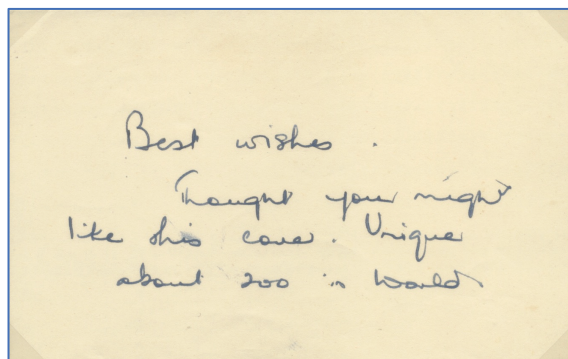 Best wishes.
Thought you might
like this cover. Unique
about 200 in World